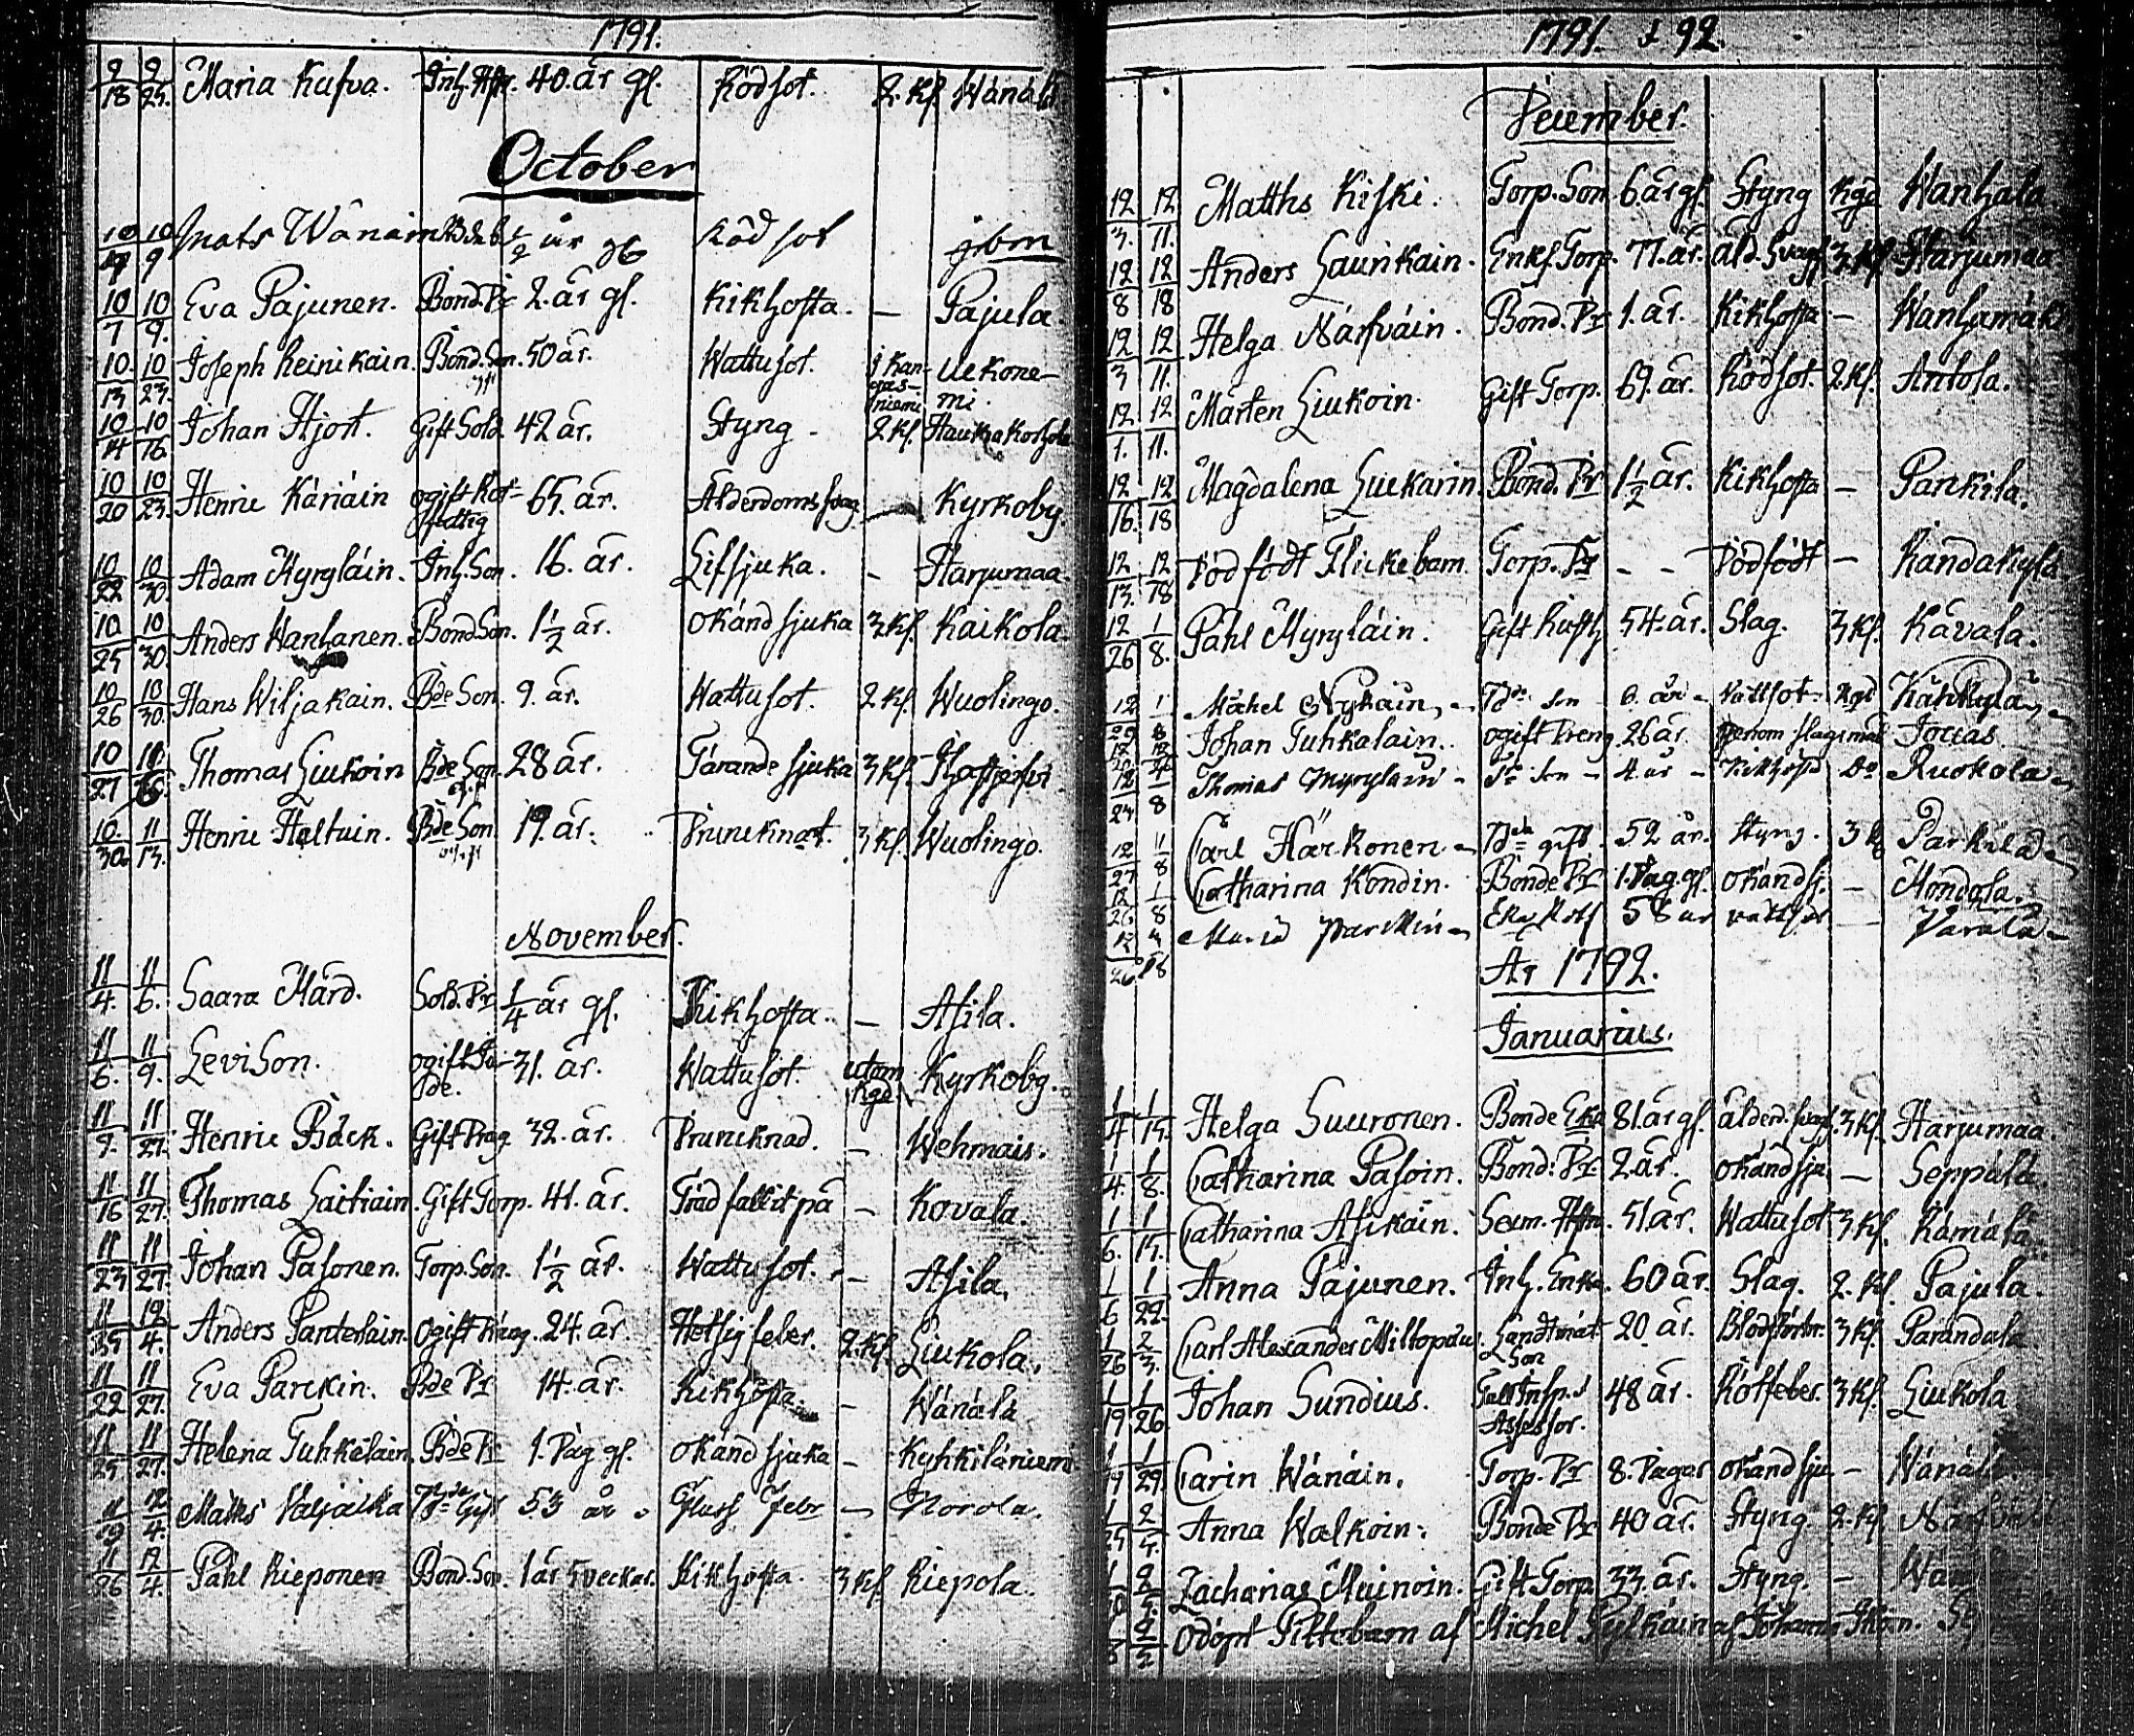 1791.
9/18 9/25. Maria Kufva. Inh. Hstr. 40. år gl. Rödsot. 2. Kl. Wänälä
October
10/7 10/9 Mats Wänäin Bde b. 1/2 år gl Rödsot ibm
10/7 10/9. Eva Pajunen. Bond. Pr 2. år gl. Kikhosta. — Pajula.
10./13 10/23. Joseph Reinikain. Bond. Son. gift 50 år. Wattusot. i Kangasniemi Uekonemi.
10/14 10/16. Johan Hjort. Gift Sold. 42 år. Styng - 2 Kl. Haukkakorhola
10/20 10/23. Henric Käriäin ogift Rotfattig 65. år. Ålderdoms svag. — Kyrkoby.
10/22 10/30. Adam Myryläin. Inh. Son. 16. år. Lifsjuka. - Harjumaa.
10/25 10/30. Anders Wanhanen. Bond Son. 1 1/2 år. okänd sjuka 3. Kl. Kaikola.
10/26 10/30. Hans Wiljakain. Bde Son. 9. år. Wattusot. 2 Kl. Wuolingo.
10/27 Thomas Liukoin Bde Son. gift 28 år. Tärande sjuka 3 Kl.
10./30. 11/13. Henric Haltuin. Bde Son ogift 19. år. Bruncknad. 3 Kl. Wuolingo.
November.
11/4. 11/6. Saara Mård. Sold. Pr 1/4 år gl. Kikhosta. — Asila.
11/6. 11/9. Levison. ogift Jude. 31. år. Wattusot. utom Kgd. Kyrkoby.
11/9. 11/27. Henric Bäck. Gift Drag 32. år. Bruncknad. — Wehmais.
11/16 11/27. Thomas Laitiain. Gift Torp. 41. år. Träd fallit på — Kovala.
11/23 11/27. Johan Pasonen. Torp. Son. 1 1/2 år. Wattusot. — Asila.
11/25 12/4. Anders Parterlain. Ogift Dräng. 24. år. Hetsig feber. 2. Kl. Liukola.
11/22 11/27. Eva Parckin. Bde Pr 14. år. Kikhosta. — Wänälä
11/25 11/27. Helena Tuhkalain. Bde Pr 1. Dag gl. okänd sjuka — Kyhkiläniemi
11/19 12/4. Maths Valjakka Bde Gift 53 år. Fluss Febr — Norola.
11/26 12/4. Påhl Rieponen Bond. Son. 1 år 5 veckor. Kikhosta. 3 Kl. Riepola.
1791. & 92.
December.
12/3. 12/11. Matths Kiski. Torp. Son 6. år gl. Styng Kgd Wanhala
12/8 12/18 Anders Laurikain. Enkl. Torp. 77. år. åld. Svagh 3. Kl. Harjumaa
12/3 12/11. Helga Närfväin. Bond. Pr 1. år. Kikhosta — Wanhamäki
12/1. 12/11. Mårten Liukoin. Gift Torp. 69. år. Rödsot. 2. Kl. Antola.
12/16. 12/18 Magdalena Liukarin. Bond. Pr 1 1/2 år. Kikhosta — Parkila.
12/13. 12/18 Dödfödt Flickebarn. Torp. Pr - - Dödfödt — Randakylä
12/26 1/8. Påhl Myryläin. Gift Rusth 54. år. Slag. 3 Kl. Kåvala.
12/29 1/8 Mickel Nykäin Bde son 6. år Vattsot 2 Kl
12 12 Johan Tuhkalain. ogift Dreng. 26 år. genom slagsmål Jouas.
12/24 1/8 Thomas Myryläin - Bde son - 4. år - Kikhosta Do Ruokola
12/27 1/8 Carl Härkonen - Bde gift. 52 år. Styng. 3 Kl Parkila
12/26 1/8 Catharina Kondin. Bonde Pr 1. Dag. gl. okänd sj. — Mondola.
12/26 1/8 Maria Parckin Eka Rotf 58 år vattsot — Parala
År 1792.
Januarius.
1/4 1/15. Helga Suuronen. Bonde Eka 81. år gl. ålderd. svagh. 3 Kl. Harjumaa.
1/4. 1/8. Catharina Pasoin. Bond. Pr 2. år. okänd sju. — Seppälä.
1/6. 1/15. Catharina Asikain. Sexm. Hstr. 51. år. Wattusot 3 Kl. Kämälä.
1/6 1/22. Anna Pajunen. Inh. Enka. 60 år. Slag. 2. Kl. Pajula.
1/26 2/3. Carl Alexander Miltopæus Landtmät. Son 20 år. Blodstörtn. 3 Kl. Parandala
1/19 1/26. Johan Sundius. Tull Insp. & Assessor. 48 år. Rötfeber. 3 Kl. Liukola
1/19 1/29. Carin Wänäin. Torp. Pr 8. Dagar okänd sju. — Wänälä
1/25 2/5. Anna Walkoin. Bonde Pr 40 år. Styng. 2. Kl.
1 2/5. Zacharias Muinoin. Gift Torp. 33. år. Styng. —
2/2 Odöpt Pittebarn af Michel Pylkäin af Johan